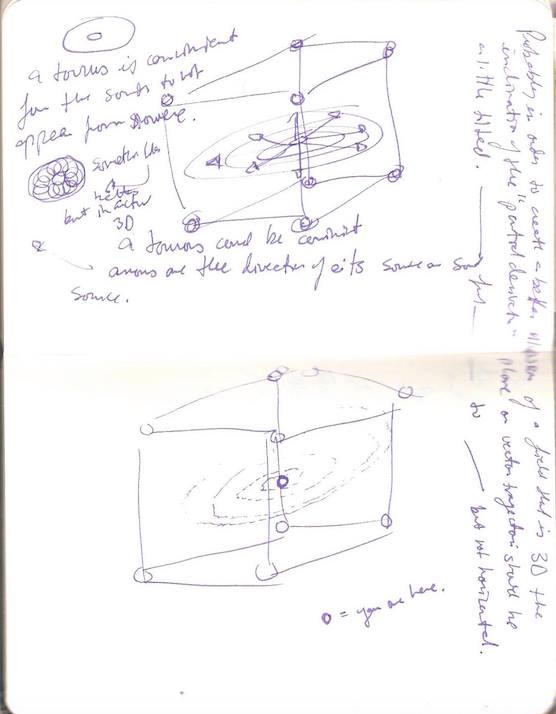 a torus is convenient
for the sound to not
appear from nowhere.
something like
but in actual
3D
a torus could be convenient
arrows are the direction of its source or sound
source.
Probably in order to create a better illusion of a field that is 3D the
inclination of the "partial derivative" plane or vector trajectories should be
a little tilted. but not horizontal.
to
= you are here.